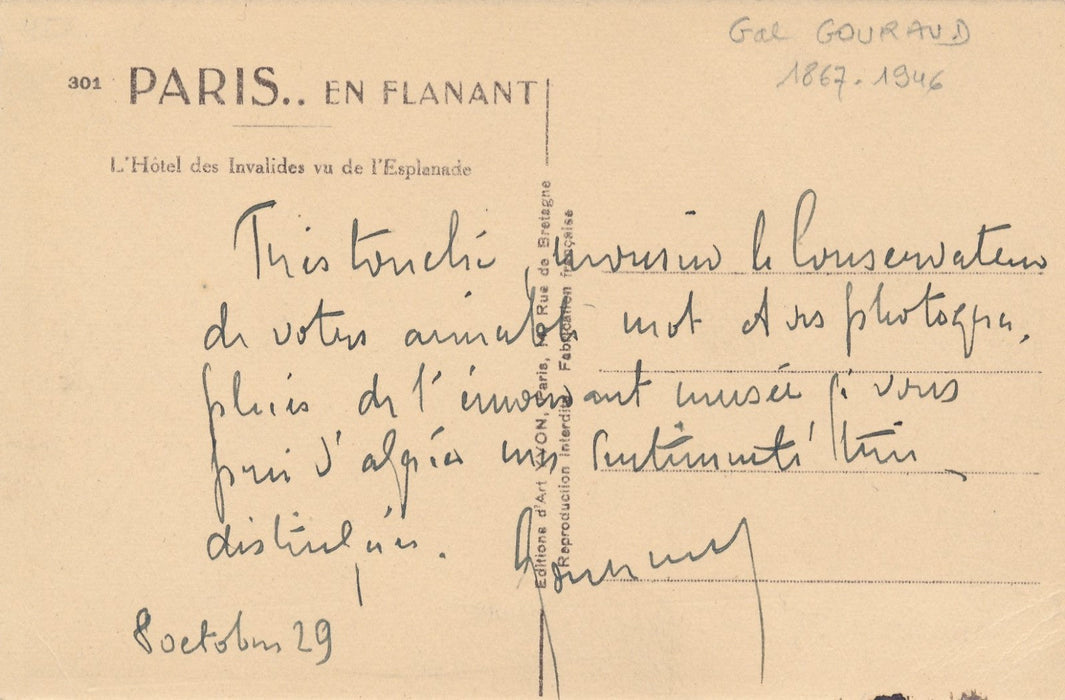 Gal GOURAUD
1867-1946
301 PARIS.. EN FLANANT
L'Hôtel des Invalides vu de l'Esplanade
Très touché, monsieur le Conservateur
de votre aimable mot et vos
de l'émouvant musée je vous
prie d'agréer mes sentiments très
distingués.
Gouraud
8 octobre 29
Editions d'Art YVON, Paris, Rue de Bretagne
Reproduction interdite Fabrication française